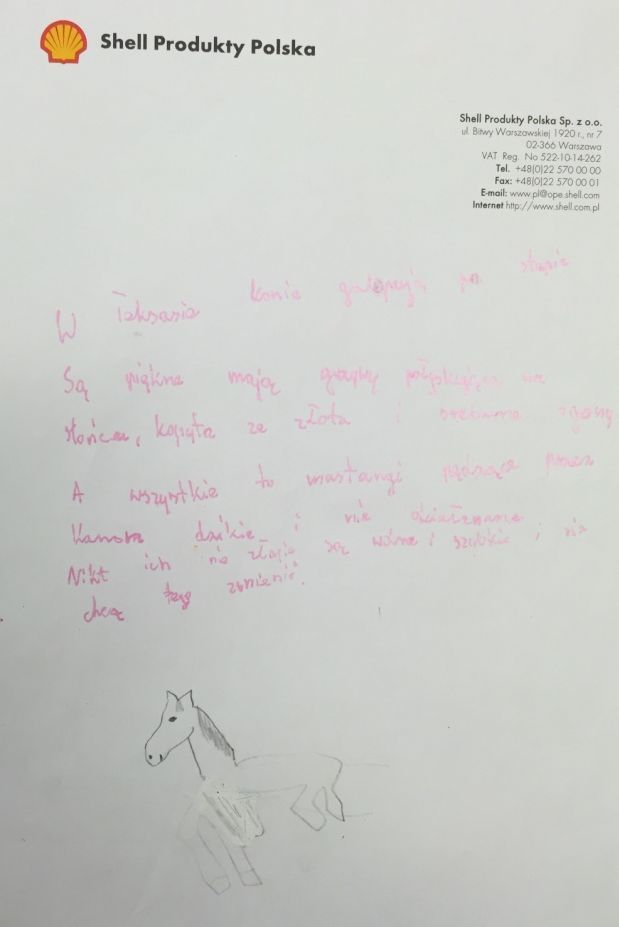 Shell Produkty Polska
Shell Produkty Polska Sp. z o.o.
ul. Bitwy Warszawskiej 1920 r., nr 7
02-366 Warszawa
VAT Reg. No 522-10-14-262
Tel. +48(0)22 570 00 00
Fax: +48(0)22 570 00 01
E-mail: www.pl@ope.shell.com
Internet http://www.shell.com.pl
W Teksasie konie galopują po stepie
Są piękne mają grzywy
słońca, kopyta ze złota i srebrne ogony
A wszystkie to mustangi pędzące przez
dzikie i nie
Nikt ich nie złapie są wolne i szybkie i nie
chcą tego zmienić.